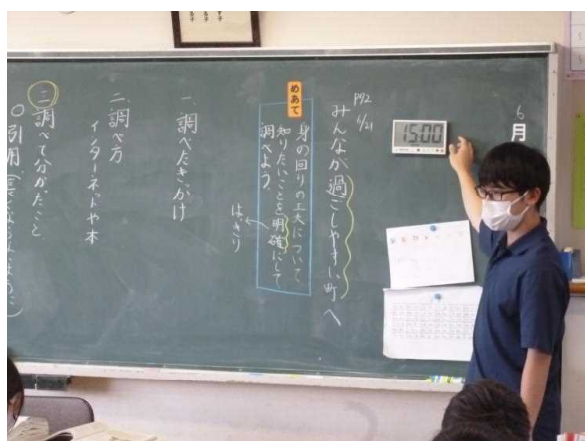 6月
15:00
P92 6/21
みんなが過ごしやすい町へ
めあて
身の回りの工夫について
知りたいことを明確にして
調べよう。
はっきり
一、調べたきっかけ
二、調べ方
インターネットや本
三、調べて分かったこと
○引用